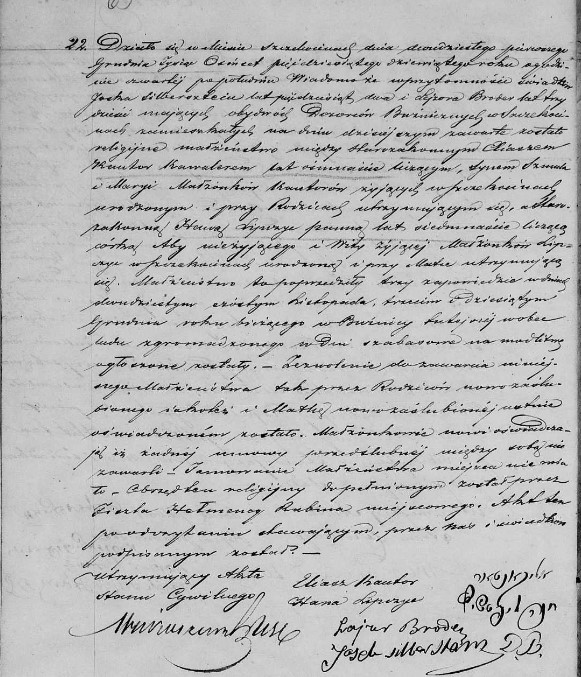 22. Działo się w Mieście Szczekocinach dnia dwudziestego pierwszego
Grudnia tysiąc Ośmset pięćdziesiątego dziewiątego roku o godzi-
nie czwartej po południu Wiadomo że w przytomności świadków
Joska Silbersztein lat pięćdziesiąt dwa i Lejzora Broder lat trzy
dzieści mających obydwóch Dozorców Bużnicznych w Szczekoci-
nach zamieszkałych na dniu dzisiejszym zawarte zostało
religijne małżeństwo między Starozakonnym Eliaszem
Kantor Kawalerem lat ośmnaście liczącym, synem Szmula
i Maryi Małżonków Kantorów żyjących w Szczekocinach
urodzonym i przy Rodzicach utrzymującym się, a Staro-
zakonną Haną Lipczyc panną lat siedmnaście liczącą
córką Aby nieżyjącego i Wity żyjącej Małżonków Lip-
czyc w Szczekocinach urodzoną i przy Matce utrzymującą
się. Małżeństwo to poprzedziły trzy zapowiedzie w dniach
dwudziestym szóstym Listopada, trzecim i dziesiątym
Grudnia roku bieżącego w Bużnicy tutejszej wobec
ludu zgromadzonego w Dni szabasowe na modlitwę
ogłoszone zostały. – Zezwolenie do zawarcia niniej-
szego Małżeństwa tak przez Rodziców nowozaślu-
bionego jakoteż i Matkę nowozaślubionej ustnie
oświadczonem zostało. Małżonkowie nowi oświadcza-
ją iż żadnej umowy przedślubnej między sobą nie
zawarli – Tamowanie Małżeństwa miejsca nie mia-
ło – Obrzędem religijny dopełnionym został przez
Rabina miejscowego. Akt ten
po odczytaniu stawającym, przez nas i świadków
podpisanym został. –
Utrzymujący Akta
Stanu Cywilnego
Eliasz Kantor
Hana Lipczyc
Lajzer Broder
Josek Silberstain